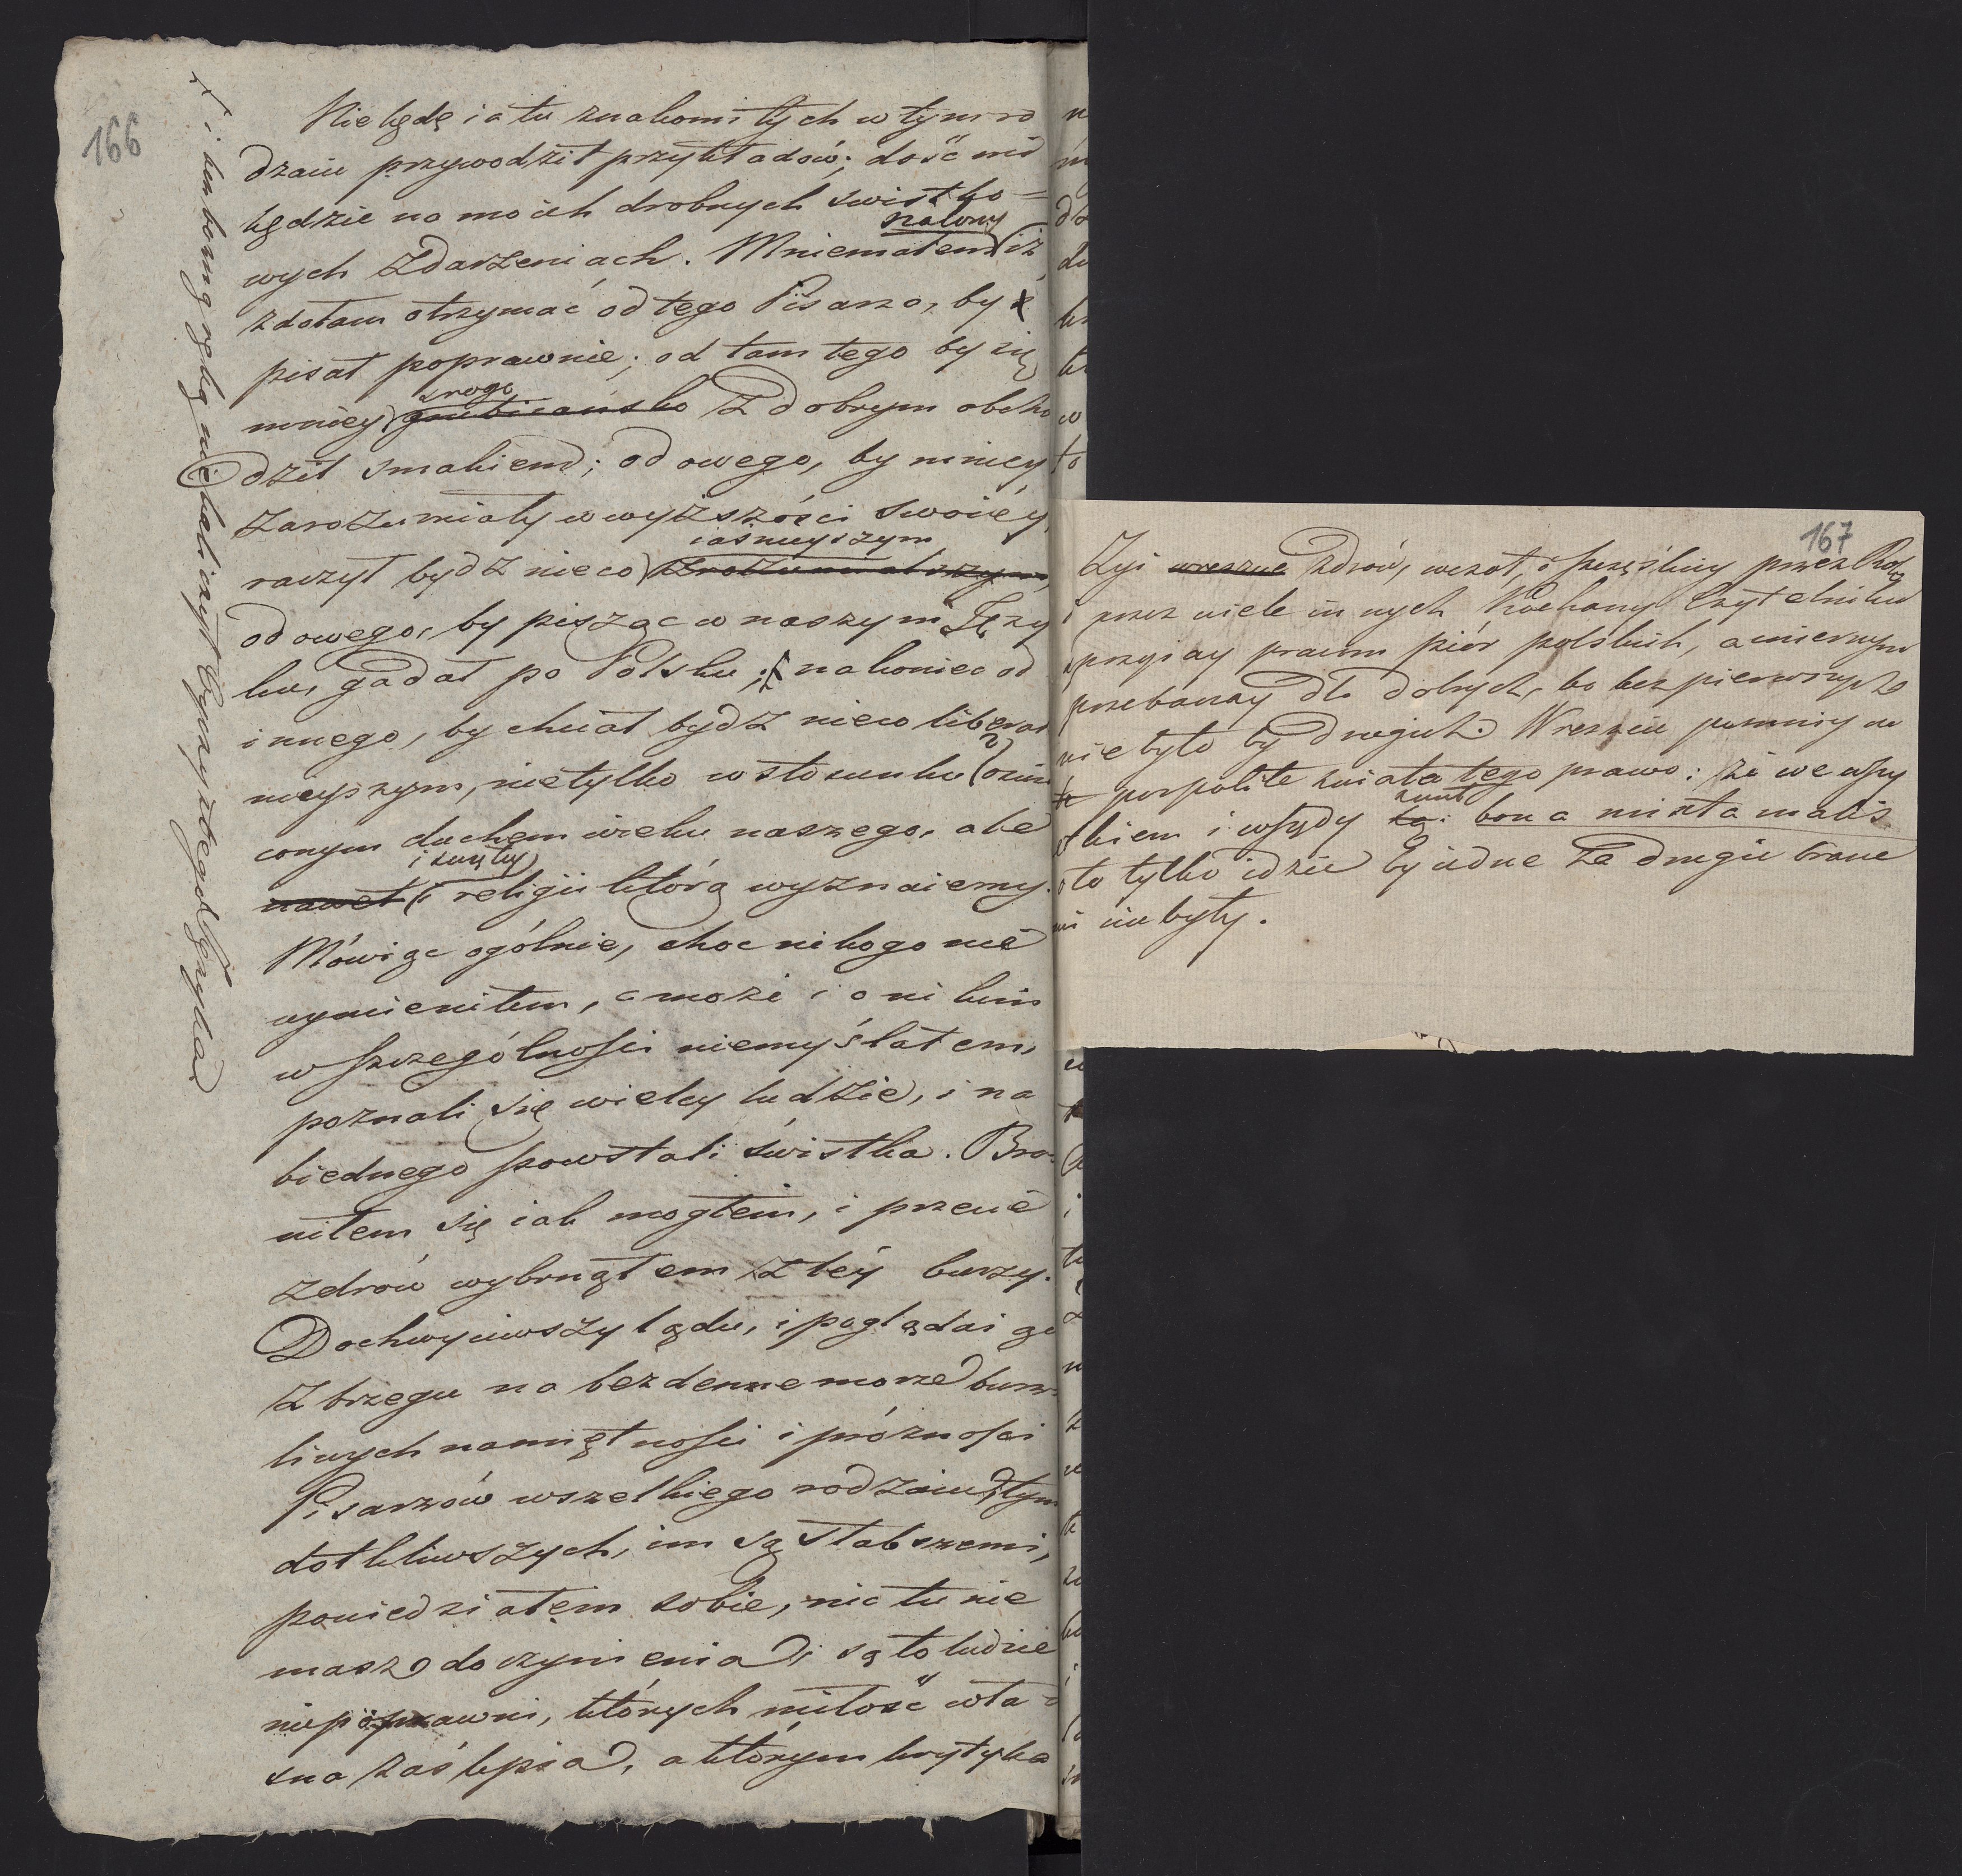 166
Nie będę ia tu znakomitych w tym ro
dzaiu przywodził przykładów; dość mi
będzie na moich drobnych świstko=
szalony
wych zdarzeniach. Mniemałem iż
zdołam otrzymać od tego Pisarza, by
pisał poprawnie; od tamtego by się
srogo
mniey grubiiańsko z dobrym obcho
dził smakiem; od owego, by mniey
zarozumiały w wyższości swoiéy,
iaśnieyszym
raczył bydź nieco zrozumialszym,
od owego, by pisząc w naszym Ięzy
ku, gadał po Polsku; nakoniec od
innego, by chciał bydź nieco liberal
nieyszym, nietylko w stosunku
conym duchem wieku naszego, ale
i świętey
nawet i religii którą wyznaiemy.
Mówiąc ogólnie, choc nikogo nie
wymieniłem, a może i o nikim
w szczególności niemyślałem,
poznali się wielcy ludzie, i na
biednego powstali świstka. Bro=
niłem się iak mogłem, i przecie
zdrów wybrnąłem z téy burzy.
Dochwyciwszy lądu, i poglądaiąc
z brzegu na bezdenne morze burz
liwych namiętności i próżności
Pisarzów wszelkiego rodzaiu, tym
dotkliwszych, im są słabszemi,
powiedziałem sobie, nic tu nie
masz do czynienia, są to ludzie
niepoprawni, których miłość wła=
sna zaślepia, a którym krytyka
167
Żyi wreszcie zdrów, wesół, i szczęśliwy przez Rok
i przez wiele innych Kochany Czytelniku
sprzyiay pracom piór polskich, a miernym
przebaczay dla dobrych, bo bez pierwszych
nie było by drugich. Wreszcie pomniy na
to pospolite świata tego prawo: że we wszy
sunt
stkiem i wszędy są: bona mixta malis
o to tylko idzie by iedne za drugie brane
mi nie były.